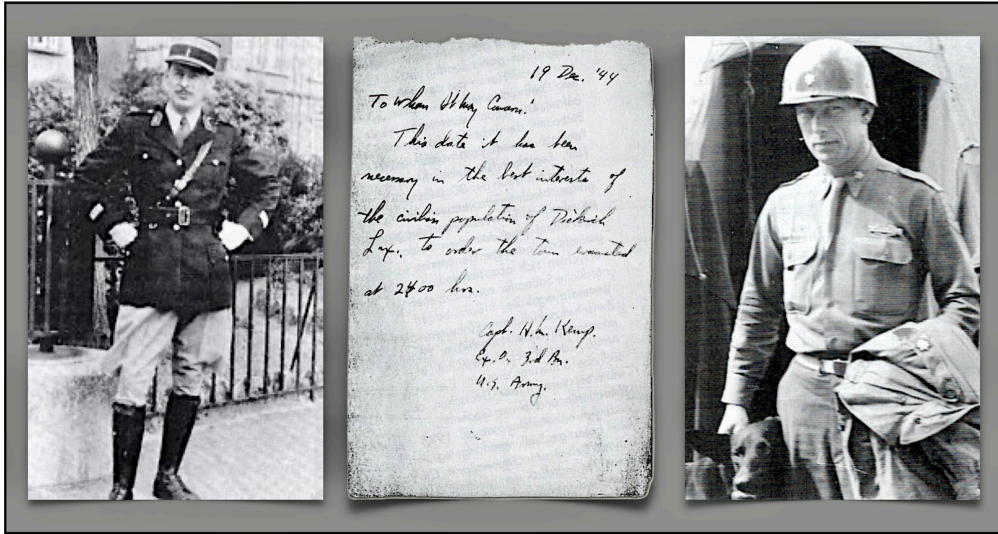 19 Dec. '44
To Whom It May Concern:
This date it has been
necessary in the best interests of
the civilian population of Diekirch
Lux. to order the town evacuated
at 2400 hrs.
Capt. H. M. Kemp.
Ex. O. 3rd Bn.
U.S. Army.